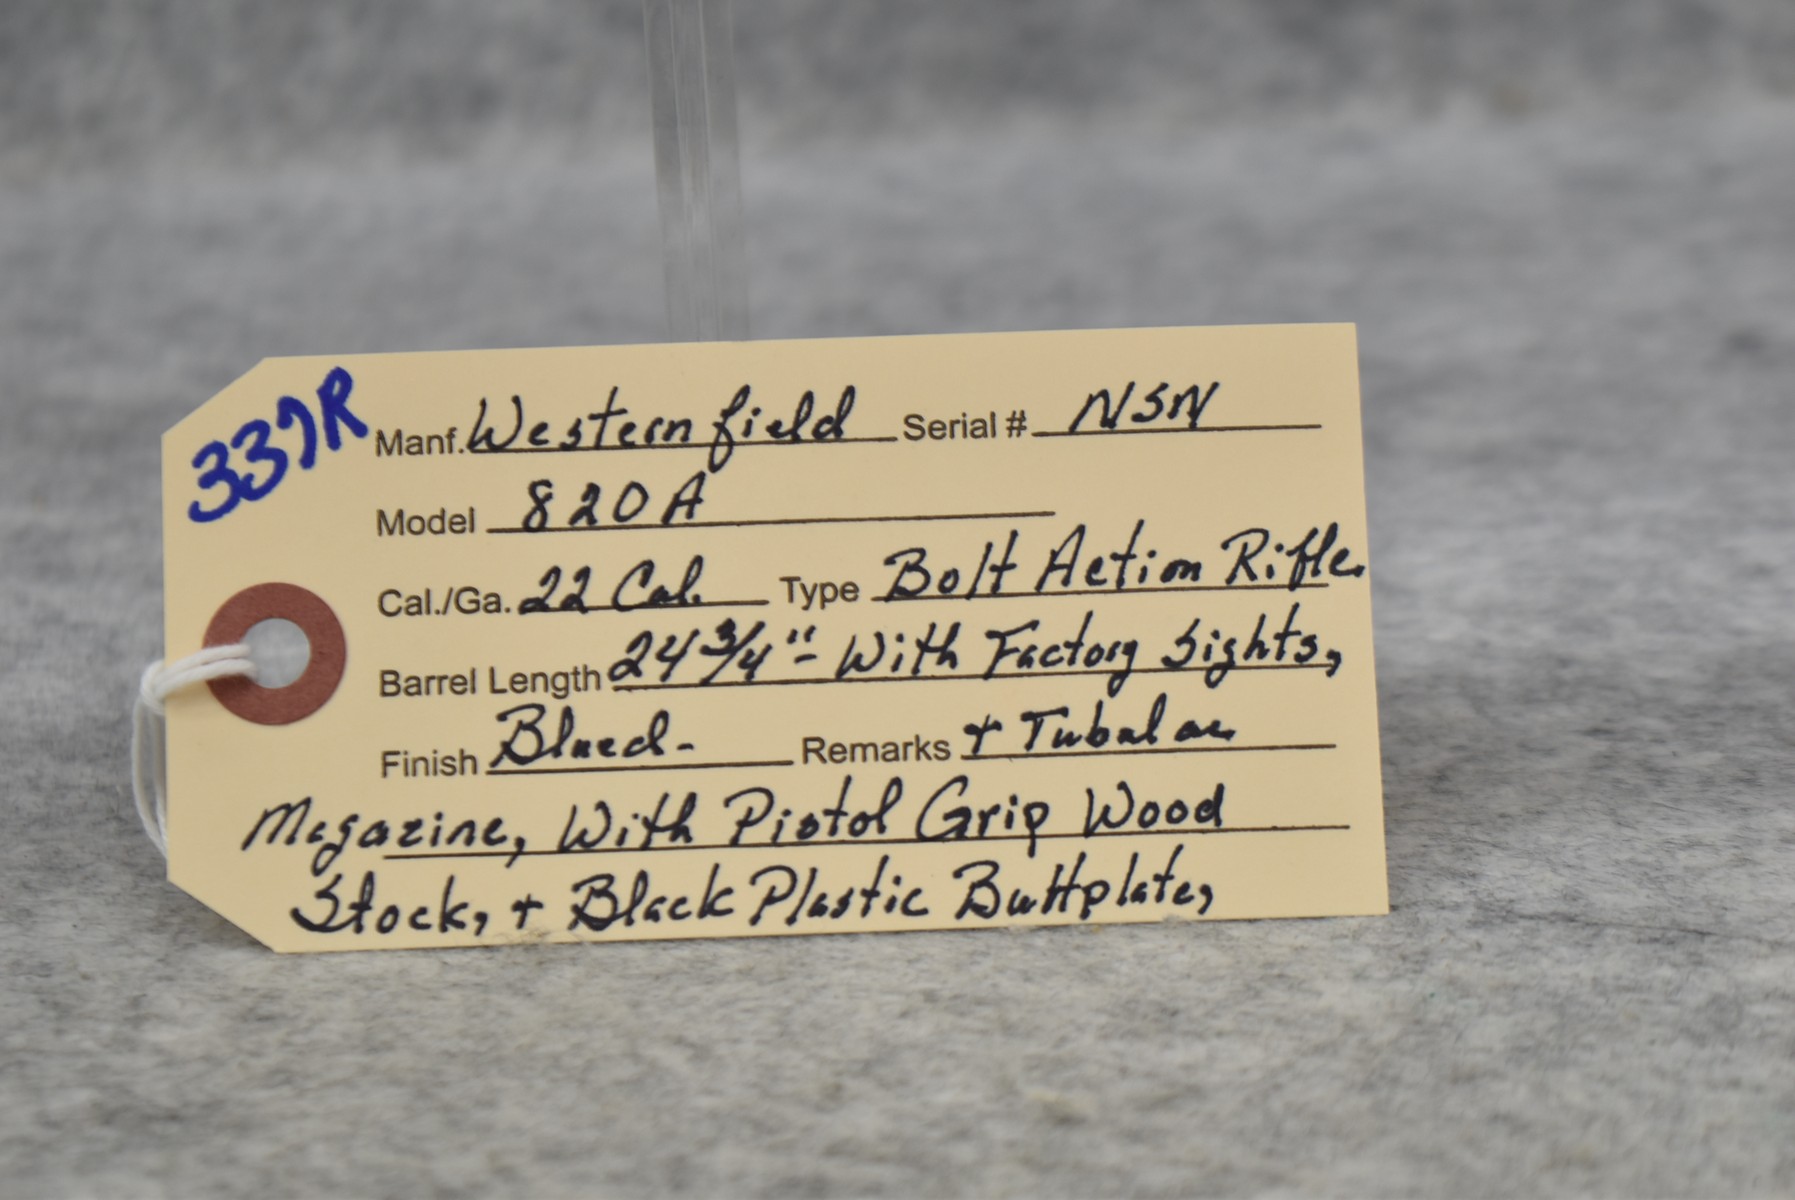 337R
Manf. Westernfield Serial # NSN
Model 820A
Cal./Ga. 22 Cal. Type Bolt Action Rifle.
Barrel Length 24 3/4" - With Factory Sights,
Finish Blued - Remarks + Tubular
Magazine, With Pistol Grip Wood
Stock, + Black Plastic Buttplate,